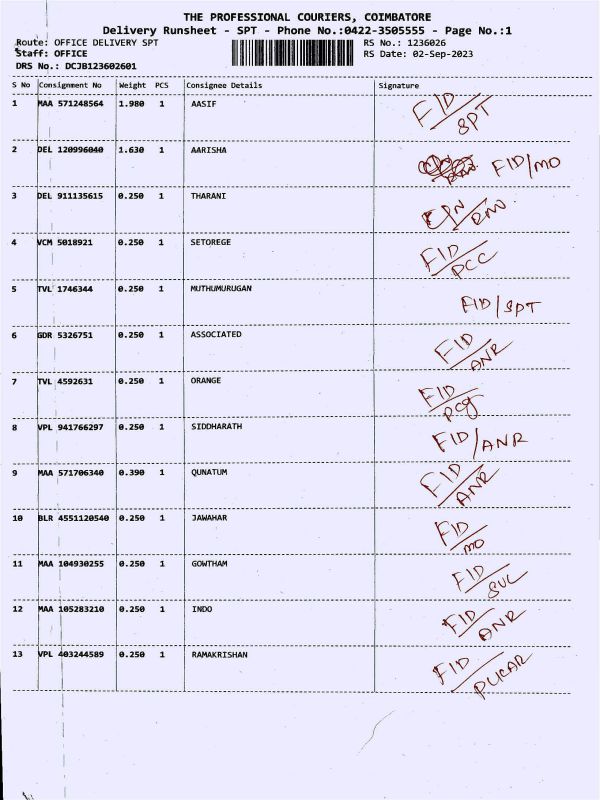 THE PROFESSIONAL COURIERS, COIMBATORE
Delivery Runsheet - SPT - Phone No.:0422-3505555 - Page No.:1
Route: OFFICE DELIVERY SPT RS No.: 1236026
Staff: OFFICE RS Date: 02-Sep-2023
DRS No.: DCJB123602601
S No Consignment No Weight PCS Consignee Details Signature
1 MAA 571248564 1.980 1 AASIF FID/SPT
2 DEL 120996040 1.630 1 AARISHA FID/MO
3 DEL 911135615 0.250 1 THARANI
4 VCM 5018921 0.250 1 SETOREGE FID/PCC
5 TVL 1746344 0.250 1 MUTHUMURUGAN FID/SPT
6 GDR 5326751 0.250 1 ASSOCIATED FID/ANR
7 TVL 4592631 0.250 1 ORANGE FID/PCG
8 VPL 941766297 0.250 1 SIDDHARATH FID/ANR
9 MAA 571706340 0.390 1 QUNATUM FID/ANR
10 BLR 4551120540 0.250 1 JAWAHAR FID/MO
11 MAA 104930255 0.250 1 GOWTHAM FID/SUL
12 MAA 105283210 0.250 1 INDO FID/ANR
13 VPL 403244589 0.250 1 RAMAKRISHAN FID/